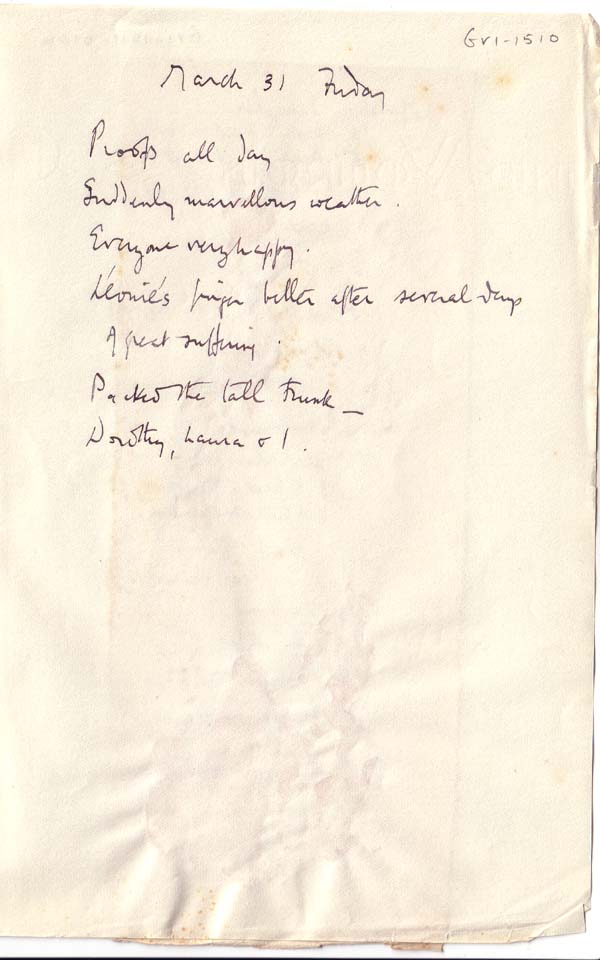 GV1-1510
March 31 Friday
Proofs all day
Suddenly marvellous weather.
Everyone very happy.
Léonie's finger better after several days
of great suffering.
Packed the tall trunk —
Dorothy, Laura & I.